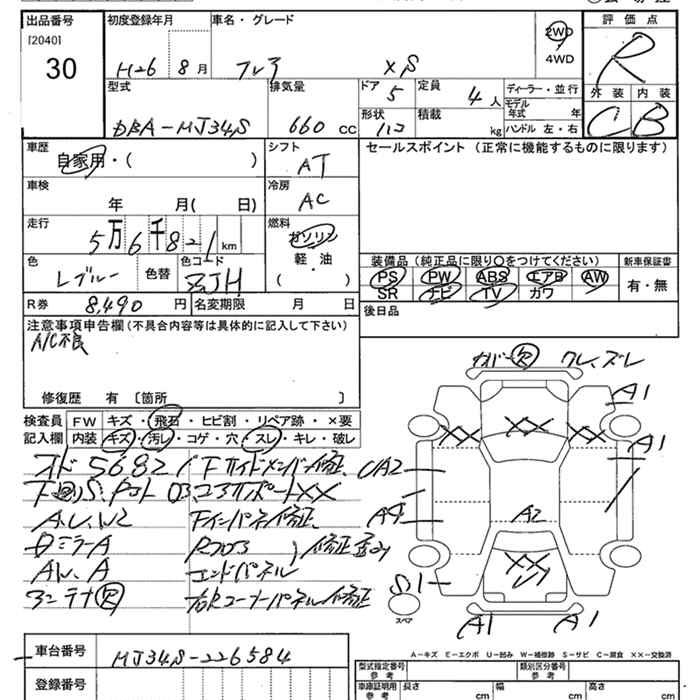 出品番号
[2040]
30
初度登録年月
H26 8月
車名・グレード
フレア XS
2WD
4WD
評価点
R
外装 内装
C B
型式
DBA-MJ34S
排気量
660 cc
ドア
5
定員
4人
形状
積載
kg
ディーラー・並行
モデル年式 年
ハンドル 左・右
車歴
自家用・( )
シフト
AT
セールスポイント(正常に機能するものに限ります)
車検
年 月( 日)
冷房
AC
走行
5万6千821km
燃料
ガソリン
軽・油
( )
色
Lブルー
色替
色コード
ZJH
装備品(純正品に限り○をつけてください)
PS PW ABS エアB AW
SR ナビ TV カワ
新車保証書
有・無
R券
8,490 円
名変期限 月 日
後日品
注意事項申告欄(不具合内容等は具体的に記入して下さい)
A/C不良
修復歴 有 〔箇所 〕
検査員記入欄
FW キズ・飛石・ヒビ割・リペア跡・×要
内装 キズ・汚レ・コゲ・穴・スレ・キレ・破レ
カバー欠 クレ、ズレ
A1
XX XX XX
A1
UA2
A4
A2
XX
S1
スペア
A1 A1
オド 5682
Fサイドメンバー修正
コアサポートXX
Fインパネ修正
ミラーA
エンドパネル
修正歪み
AW.A
アンテナ欠
右Rコーナーパネル修正
A-キズ E-エクボ U-凹み W-補修跡 S-サビ C-腐食 XX-交換済
車台番号
MJ34S-226584
登録番号
型式指定番号
参考
類別区分番号
参考
車庫証明用
参考
長さ cm
幅 cm
高さ cm